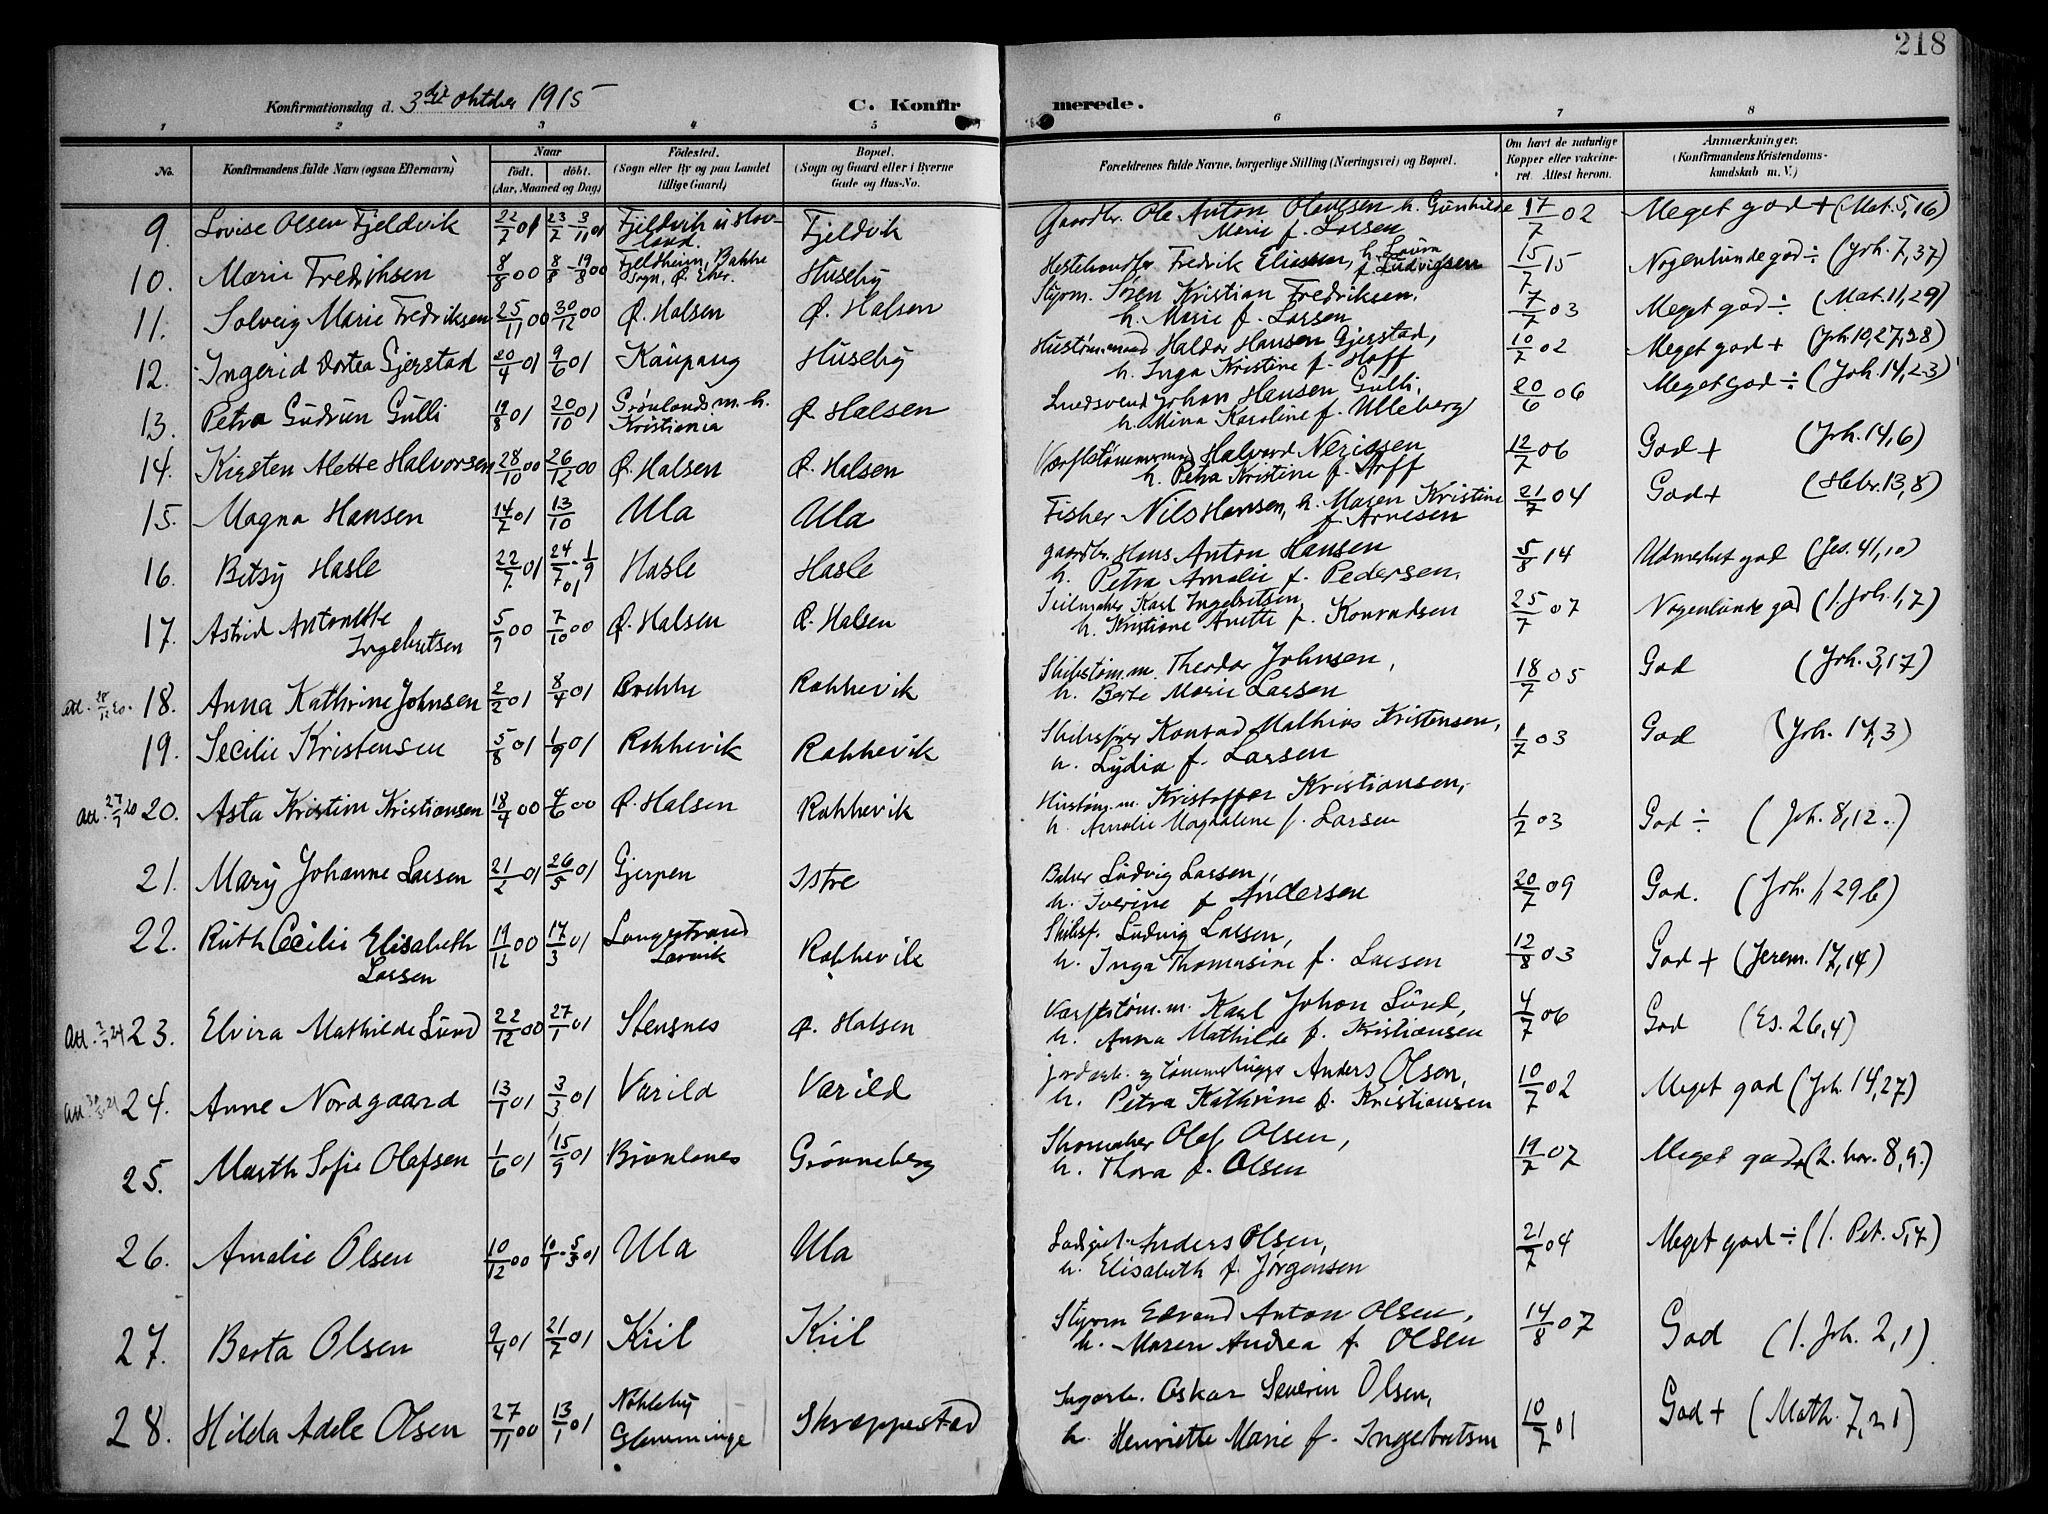 218
Konfirmationsdag d. 3die oktober 1915 C. Konfirmerede.
1 2 3 4 5 6 7 8
No. Konfirmandens fulde Navn (ogsaa Efternavn) Naar født. døbt. (Aar, Maaned og Dag) Fødested. (Sogn eller By og paa Landet tillige Gaard) Bopæl. (Sogn og Gaard eller i Byerne Gade og Hus-No. Forældrenes fulde Navne, borgerlige Stilling (Næringsvei) og Bopæl. Om havt de naturlige Kopper eller vaccineret. Attest herom. Anmærkninger. (Konfirmandens Kristendomskundskab m. V.)
9. Lovise Olsen Fjeldvik 22/7 01 23/7 - 3/11 01 Fjeldvik Fjeldvik Gaardbr. Ole Anton Olausen h. Gunhilde Marie f. Larsen 17/7 02 Meget god + (Mat. 5,16)
10. Marie Fredriksen 8/8 00 8/8 - 19/8 00 Feldheim, Bakke Sogn, Ø. Eker. Huseby Hestehandler Fredrik Eliassen, h. Laura f. Ludvigsen 15/7 15 Nogenlunde god ÷ (Joh. 7,37)
11. Solveig Marie Fredriksen 25/11 00 30/12 00 Ø. Halsen Ø. Halsen Styrm. Søren Kristian Fredriksen, h. Marie f. Larsen 7/7 03 Meget god ÷ (Mat. 11,29)
12. Ingerid Dortea Gjerstad 20/4 01 9/6 01 Kaupang Huseby Hustømmermand Haldor Hansen Gjerstad, h. Inga Kristine f. Hoff 10/7 02 Meget god + (Joh. 10,27,28)
13. Petra Gudrun Gulli 19/8 01 20/10 01 Grønlands m.h. Kristiania Ø. Halsen Smedsvend Johan Hansen Gulli, h. Mina Karoline f. Ulleberg 20/6 06 Meget god ÷ (Joh. 14,23)
14. Kirsten Alette Halvorsen 28/10 00 26/12 00 Ø. Halsen Ø. Halsen Værftstømmermand Halvard h. Petra Kristine f. 12/7 06 God + (Joh. 14,6)
15. Magna Hansen 14/7 01 13/10 Ula Ula Fisker Nils Hansen, h. Maren Kristine f. Arnesen 21/7 04 God + (Hebr. 13,8)
16. Betsy Hasle 22/7 01 24/7 - 1/9 01 Hasle Hasle gaardbr. Hans Anton Hansen h. Petra Amalie f. Pedersen. 5/8 14 Udmerket god (Jes. 41,10)
17. Astrid Antonette Ingebretsen 5/9 00 7/10 00 Ø. Halsen Ø. Halsen Seilmaker Karl Ingebretsen h. Kristiane Anette f. Konradsen 25/7 07 Nogenlunde god (1. Joh. 1,7)
18. Anna Kathrine Johnsen 2/2 01 8/4 01 Brekke Rakkevik Skibstømm. Theodor Johnsen, h. Berte Marie Larsen 18/7 05 God (Joh. 3,17)
19. Secilie Kristensen 5/8 01 1/9 01 Rakkevik Rakkevik Skibsfører Konrad Mathias Kristensen, h. Lydia f. Larsen 1/7 03 God (Joh. 17,3)
Att. 27/7 20 20. Asta Kristine Kristiansen 18/4 00 4/6 00 Ø. Halsen Rakkevik Hustøm.m. Kristoffer Kristiansen, h. Amalie Magdalene f. Larsen 1/7 03 God ÷ (Joh. 8,12.)
21. Mary Johanne Larsen 21/2 01 26/5 01 Gjerpen Istre Baker Ludvig Larsen, h. Iverine f Andersen 20/7 09 God. (Joh. 1, 29b)
22. Ruth Cecilie Elisabeth Larsen 19/12 00 17/3 01 Langestrand Larvik Rakkevik Skibsf. Ludvig Larsen, h. Inga Thomasine f. Larsen 12/8 03 God + (Jerem. 17,14)
23. Elvira Mathilde Lund 22/12 00 27/1 01 Stensnes Ø. Halsen Værftstøm.m. Karl Johan Lund, h. Anna Mathilde f. Kristiansen 4/7 06 God (Es. 26,4)
24. Anne Nordgaard 13/1 01 3/3 01 Varild Varild jordarb. og tømmerhugger Anders Olsen, h. Petra Kathrine f. Kristiansen 10/7 02 Meget god (Joh. 14,27)
25. Marth Sofie Olafsen 1/6 01 15/9 01 Brunlanes Grønneberg Skomaker Olaf Olsen, h. Thora f. Olsen 19/7 07 Meget god + (2. kor. 8,9.)
26. Amalie Olsen 10/12 00 10/1 - 5/3 01 Ula Ula Anders Olsen, h. Elisabeth f. Jørgensen 21/7 04 Meget god ÷ (1. Pet. 5,7)
27. Berta Olsen 9/4 01 21/7 01 Kiil Kiil Styrm Edvard Anton Olsen, h. Maren Andrea f. Olsen 14/8 07 God (1. Joh. 2,1)
28. Hilda Adele Olsen 27/11 00 13/1 01 Nakleby Glemminge Skræppestad Oskar Severin Olsen, h. Henriette Marie f. Ingebretsen 10/7 01 God + (Math. 7,21)